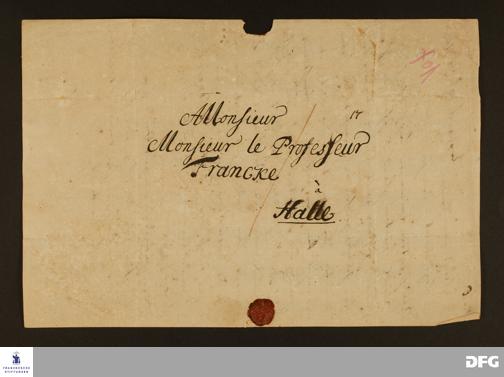 A Monsieur
Monsieur le Professeur
Francke
à
Halle
FRANCKESCHE
STIFTUNGEN
DFG